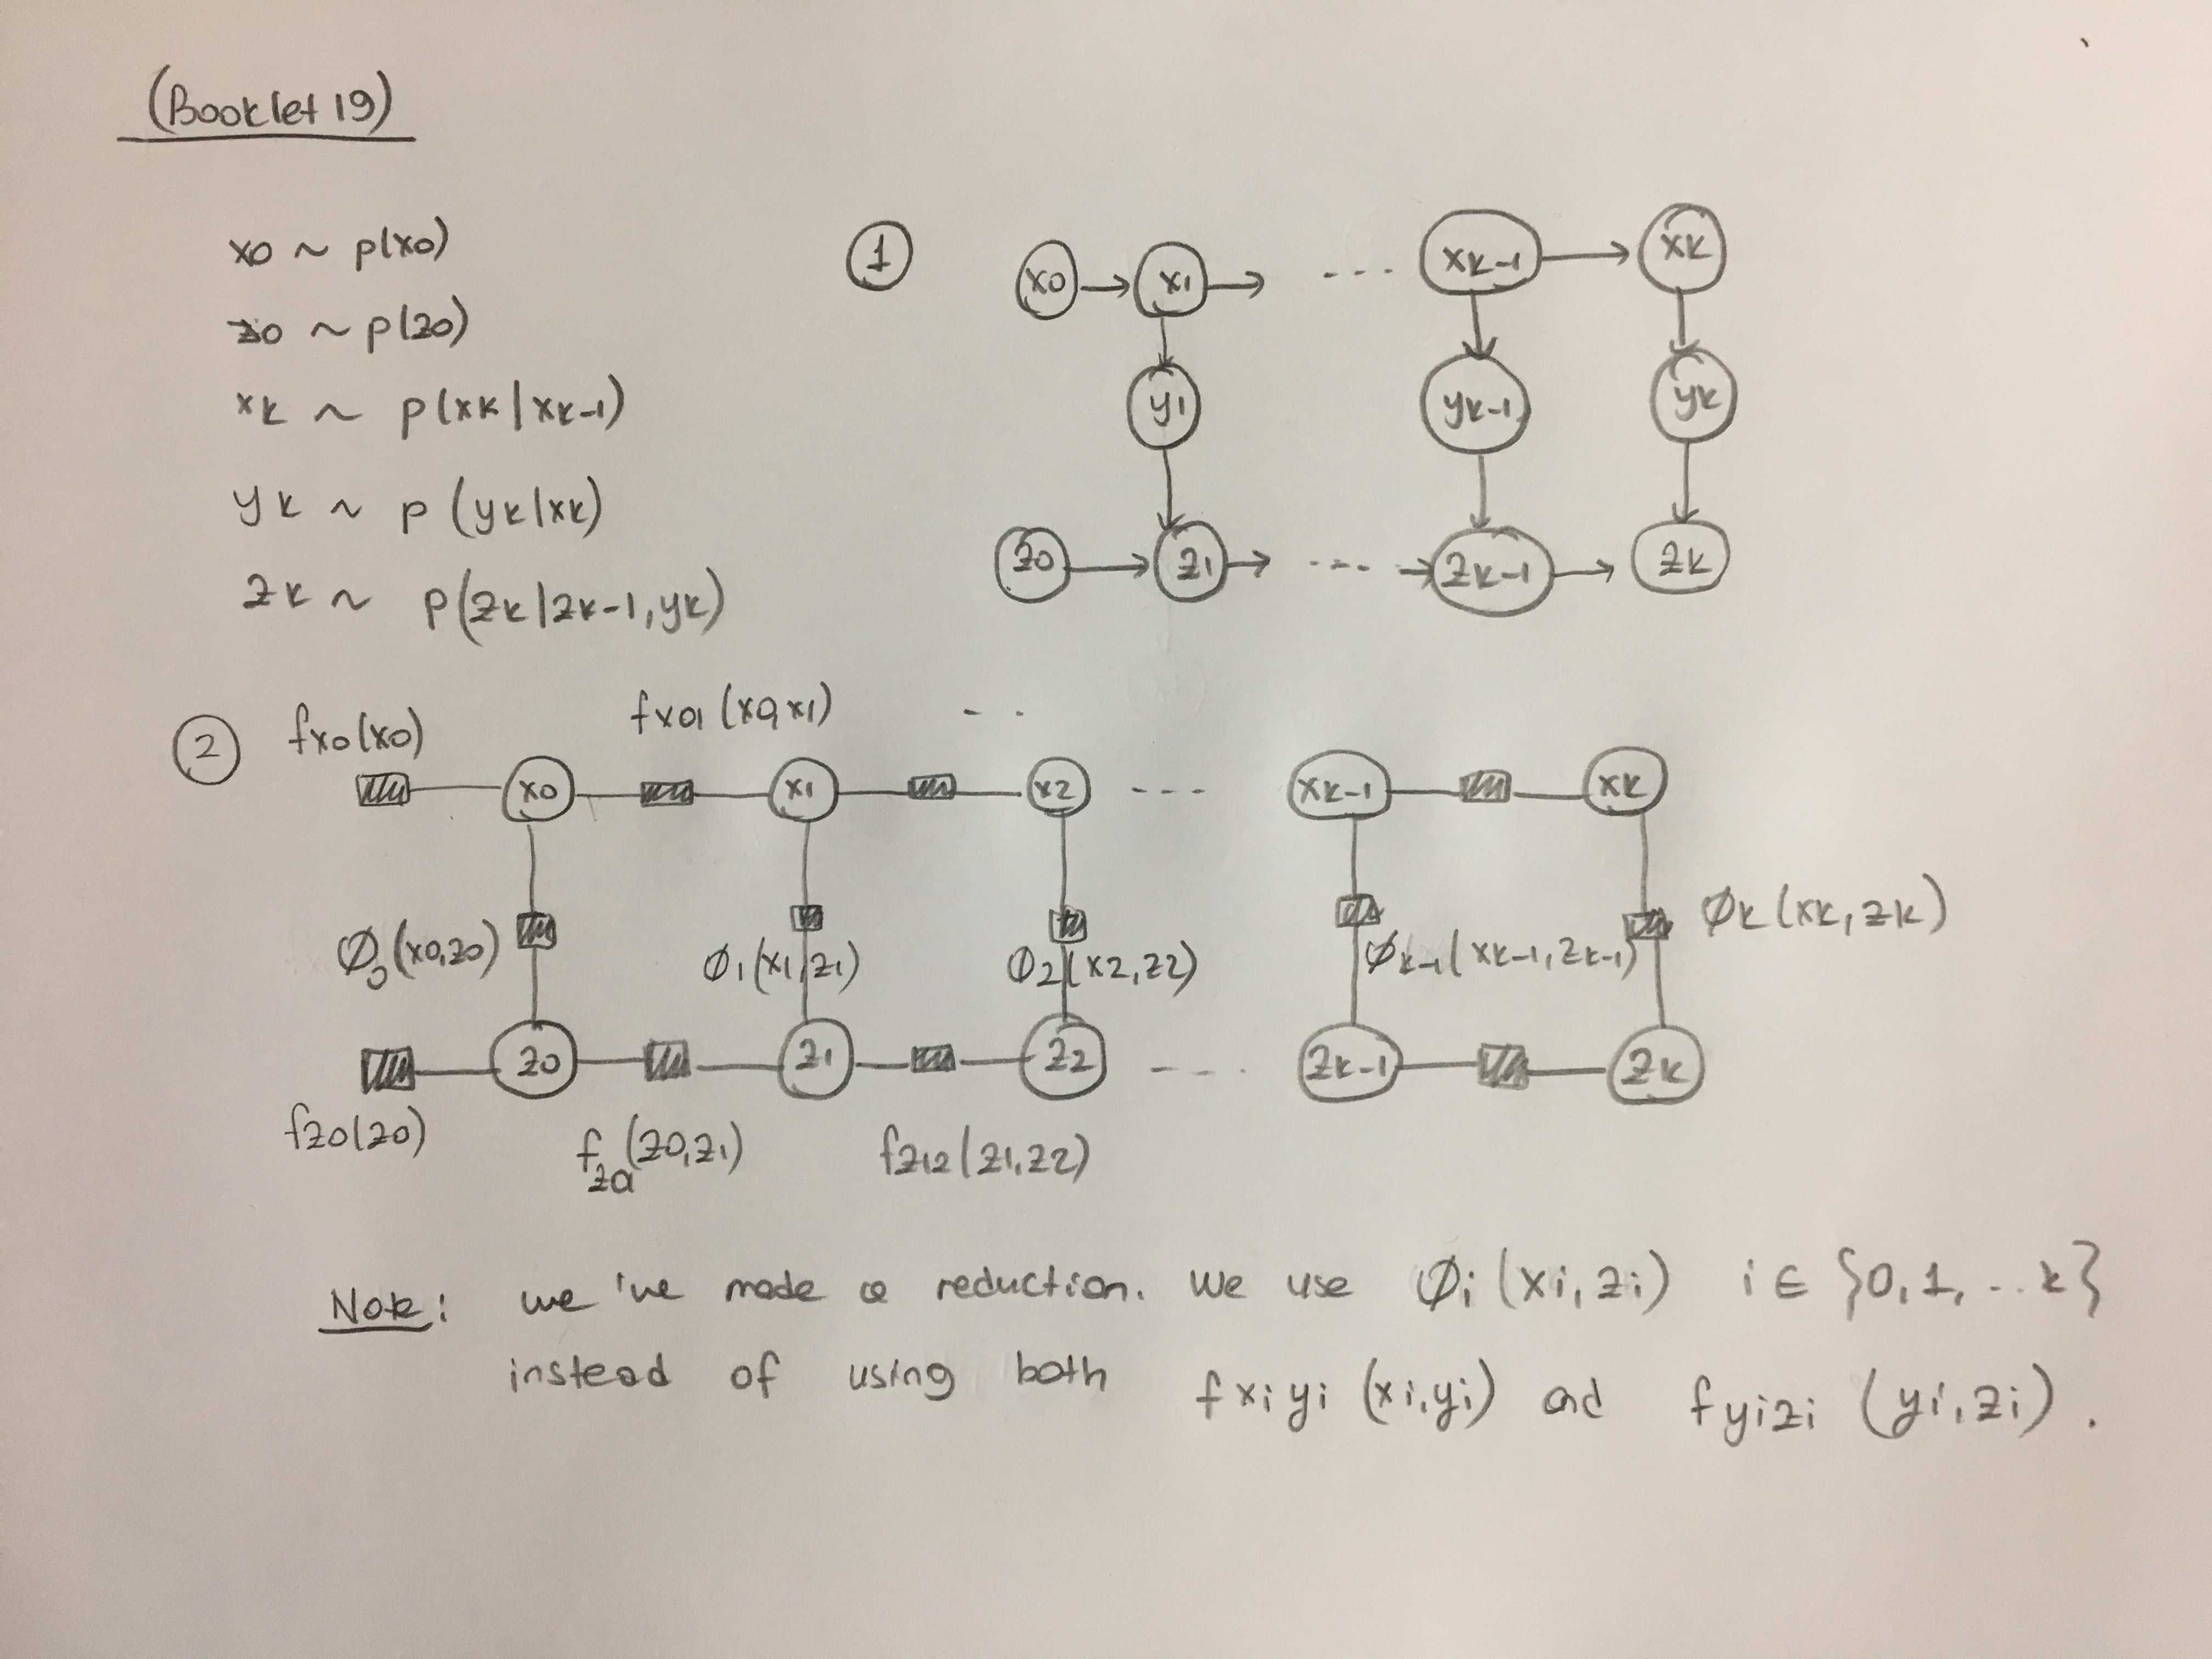 (Booklet 19)
x0 ~ p(x0)
z0 ~ p(z0)
xk ~ p(xk|xk-1)
yk ~ p(yk|xk)
zk ~ p(zk|zk-1,yk)
1
x0 x1 --- xk-1 xk
y1 yk-1 yk
z0 z1 --- zk-1 zk
2 fx0(x0) fx01(x0,x1) --
x0 x1 x2 --- xk-1 xk
Ø0(x0,z0) Ø1(x1,z1) Ø2(x2,z2) Øk-1(xk-1,zk-1) Øk(xk,zk)
z0 z1 z2 ---- zk-1 zk
fz0(z0) fz01(z0,z1) fz12(z1,z2)
Note: we've made a reduction. We use Øi(xi,zi) i ∈ {0,1,..k}
instead of using both fxiyi(xi,yi) and fyizi(yi,zi).